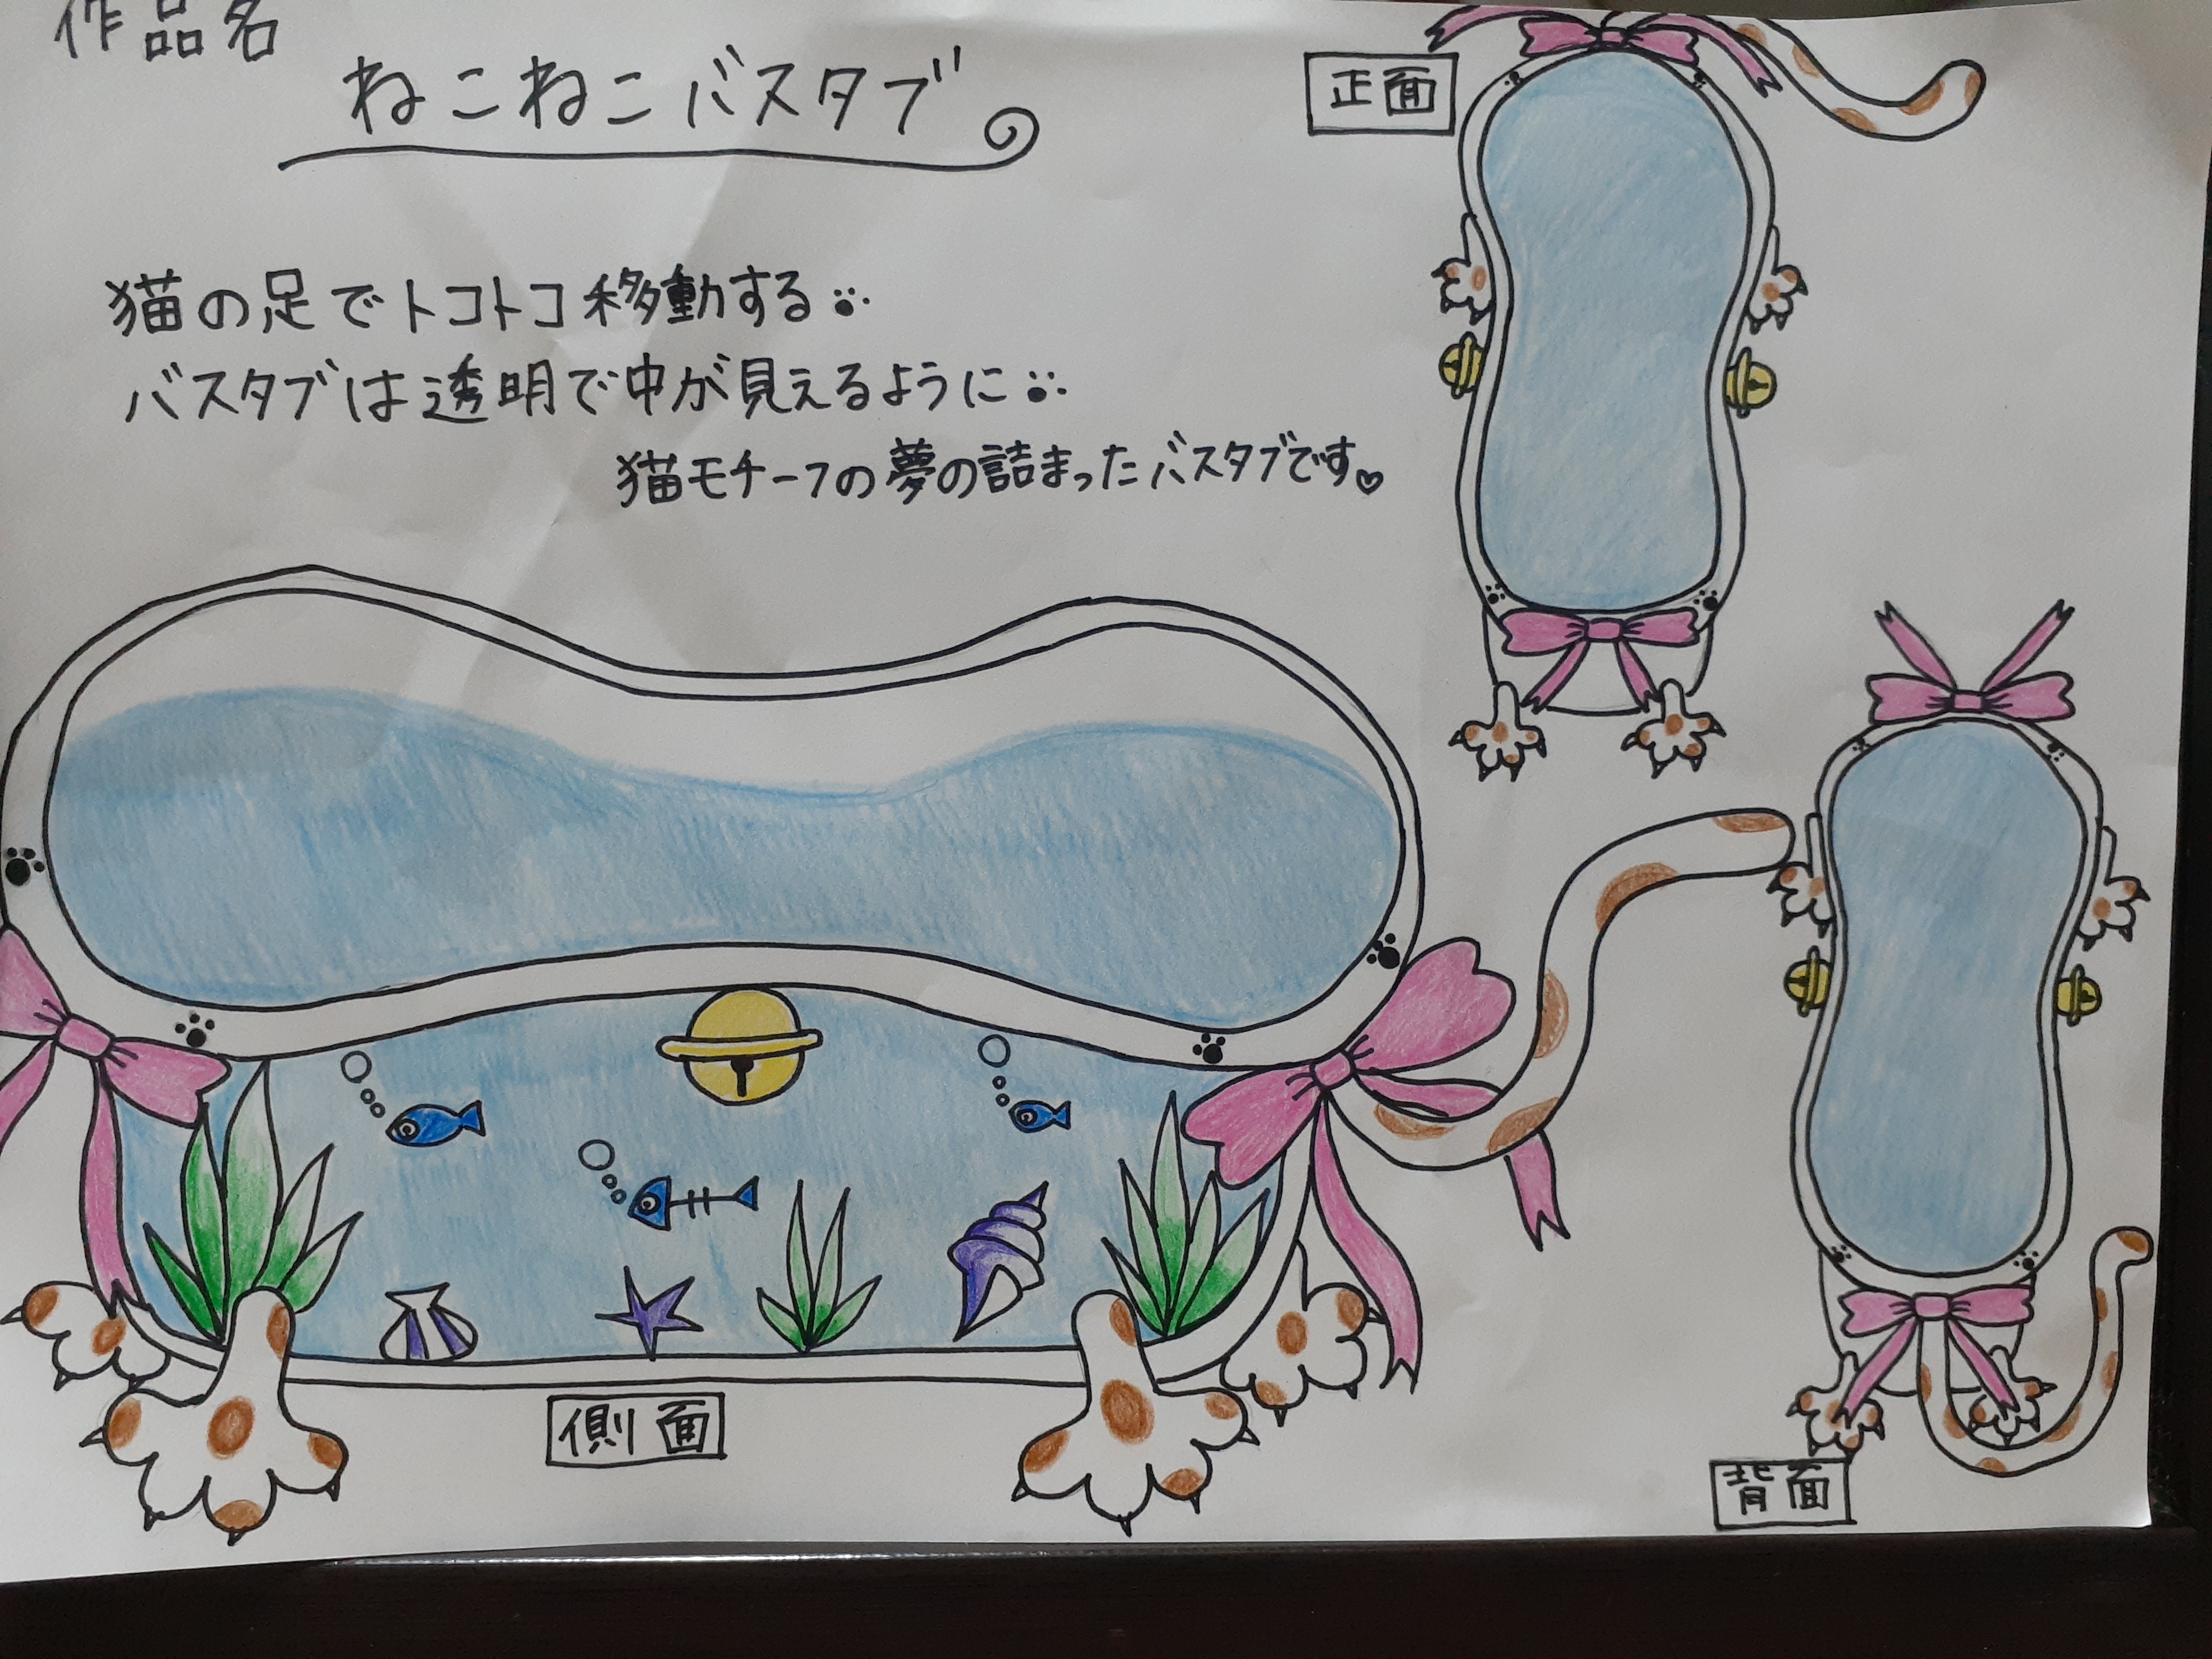 作品名
ねこねこバスタブ
猫の足でトコトコ移動する
バスタブは透明で中が見えるように
猫モチーフの夢の詰まったバスタブです♡
正面
側面
背面